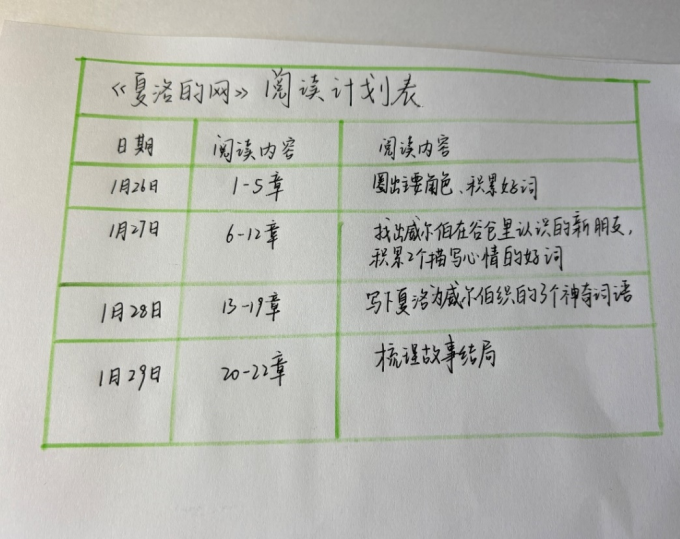 《夏洛的网》阅读计划表
日期 阅读内容 阅读内容
1月26日 1-5章 圈出主要角色、积累好词
1月27日 6-12章 找出威尔伯在谷仓里认识的新朋友,
积累2个描写心情的好词
1月28日 13-19章 写下夏洛为威尔伯织的3个神奇词语
1月29日 20-22章 梳理故事结局